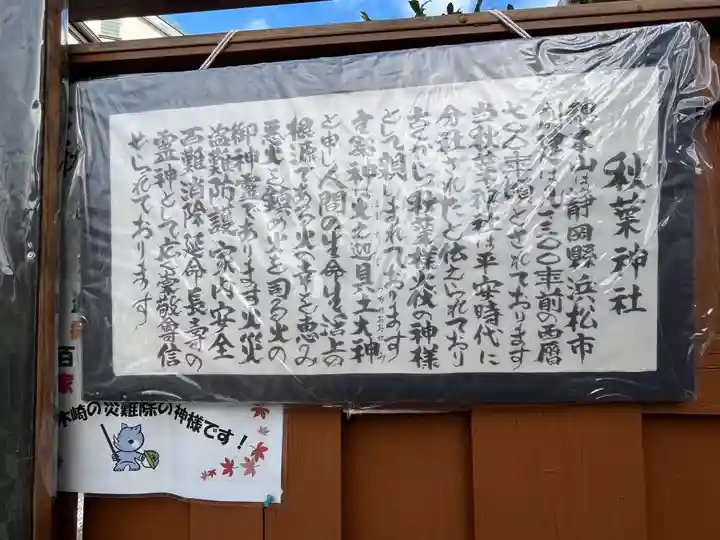 秋葉神社
総本山は静岡縣浜松市
創建は凡一三〇〇年前の西暦
七〇〇年頃とされております
当秋葉神社は平安時代に
分社されたと伝えられており
古くから秋葉様火伏の神様
として親しまれております
主祭神は火之迦具土大神
ひのかぐつちのおおかみ
と申し人間の生命生活上の
根源である火の幸を恵み
悪火を鎮め火を司る火の
御神霊であります火災
盗難防護 家内安全
百難消除 延命長寿の
霊神として広く崇敬尊信
せられております
百家
木崎の災難除の神様です!